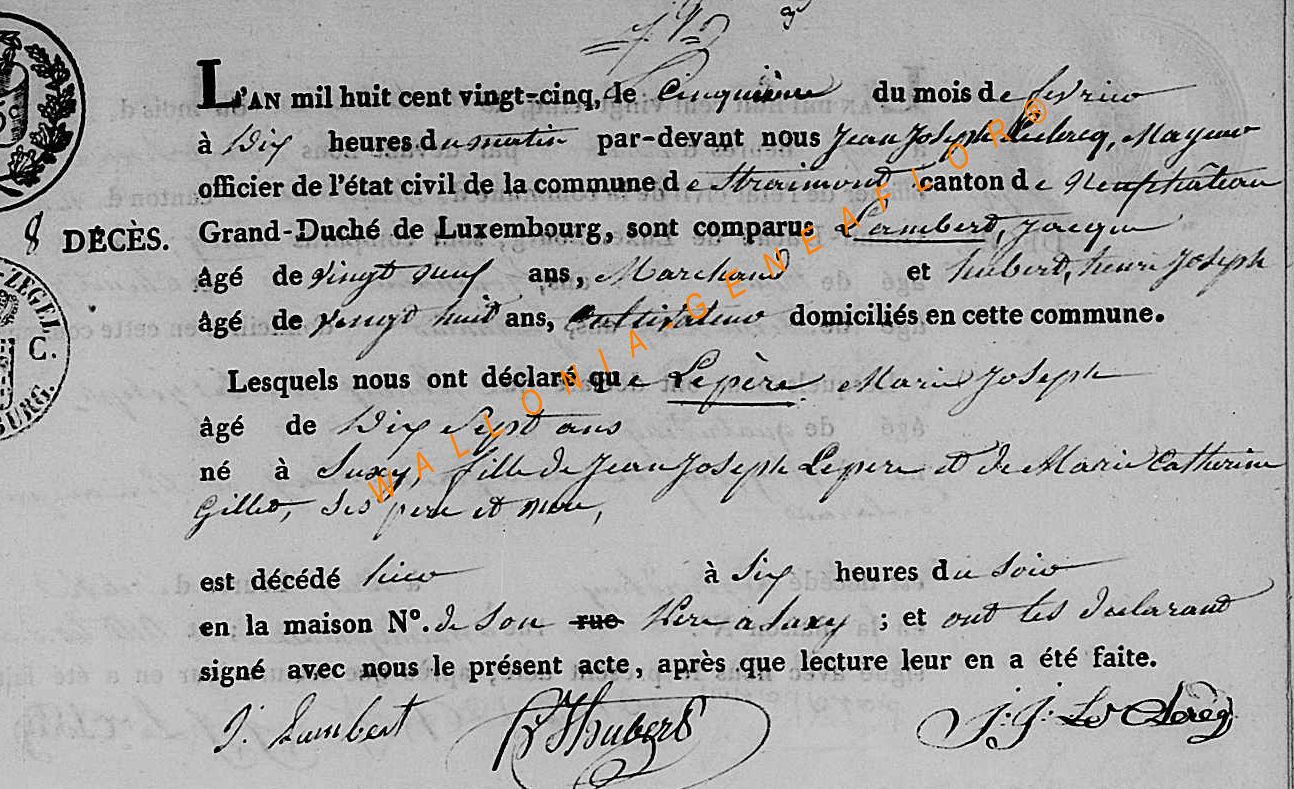 L'AN mil huit cent vingt-cinq, le Cinquième du mois de fevrier
à Dix heures du matin par-devant nous Jean Joseph Leclercq, Mayeur
officier de l'état civil de la commune de Straimont canton de Neufchâteau
8 DÉCÈS. Grand-Duché de Luxembourg, sont comparus Lambert, Jacque
âgé de vingt neuf ans, Marchand et hubert, henri Joseph
ZEGEL
C.
BURG.
âgé de vingt huit ans, Cultivateur domiciliés en cette commune.
Lesquels nous ont déclaré que Lepère Marie Joseph
âgé de Dix Sept ans
né à Suxy, fille de Jean Joseph Lepere et de Marie Catherine
Gillet, ses pere et mere,
est décédé hier à Six heures du Soir
en la maison N°. de son rue Pere a Suxy ; et ont les declarant
signé avec nous le présent acte, après que lecture leur en a été faite.
J. Lambert Hubert J: J: Le Clercq
WALLONIA.GENEAFLOR®